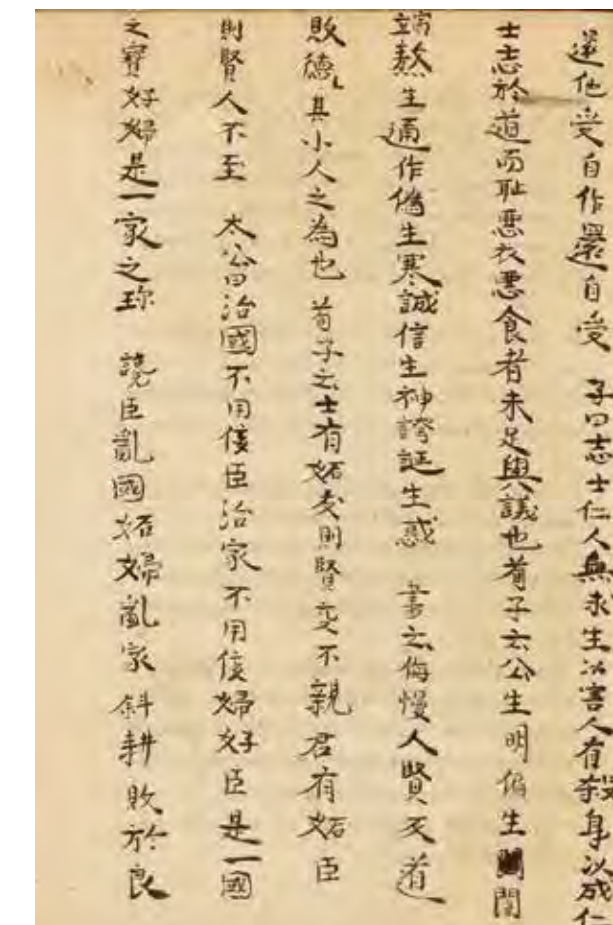 還他受自作還自受 子曰志士仁人無求生以害人有殺身以成仁
士志於道而恥惡衣惡食者未足與議也荀子云公生明偏生闇
端慤生通作偽生塞誠信生神誇誕生惑 書云侮慢人賢反道
敗德其小人之為也 荀子云士有妬友則賢交不親君有妬臣
則賢人不至 太公曰治國不用佞臣治家不用佞婦好臣是一國
之寶好婦是一家之珎 讒臣亂國妬婦亂家 斜耕敗於良